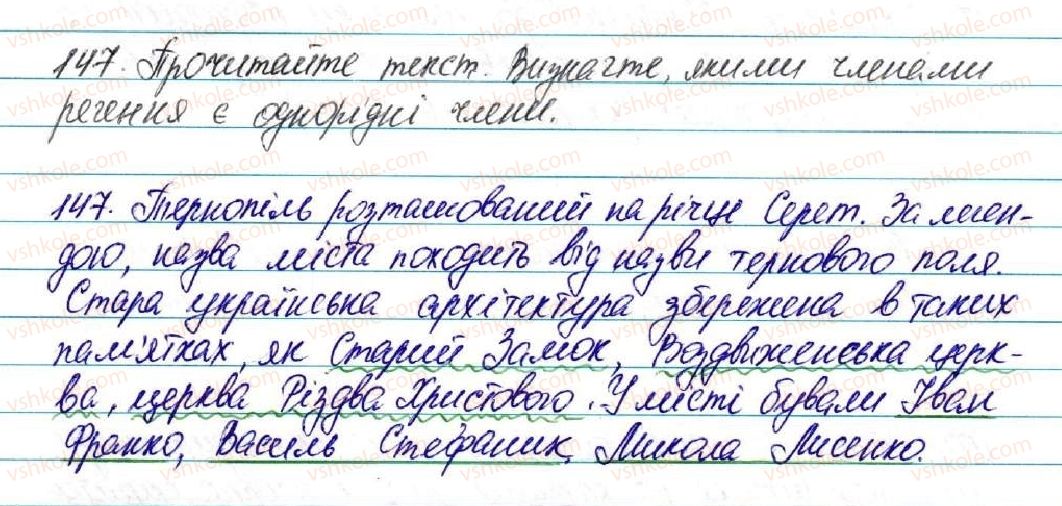 147. Прочитайте текст. Визначте, якими членами
речення є однорідні члени.
147. Тернопіль розташований на річці Серет. За леген-
дою, назва міста походить від назви тернового поля.
Стара українська архітектура збережена в таких
пам'ятках, як Старий Замок, Воздвиженська церк-
ва, церква Різдва Христового. У місті бували Іван
Франко, Василь Стефаник, Микола Лисенко.